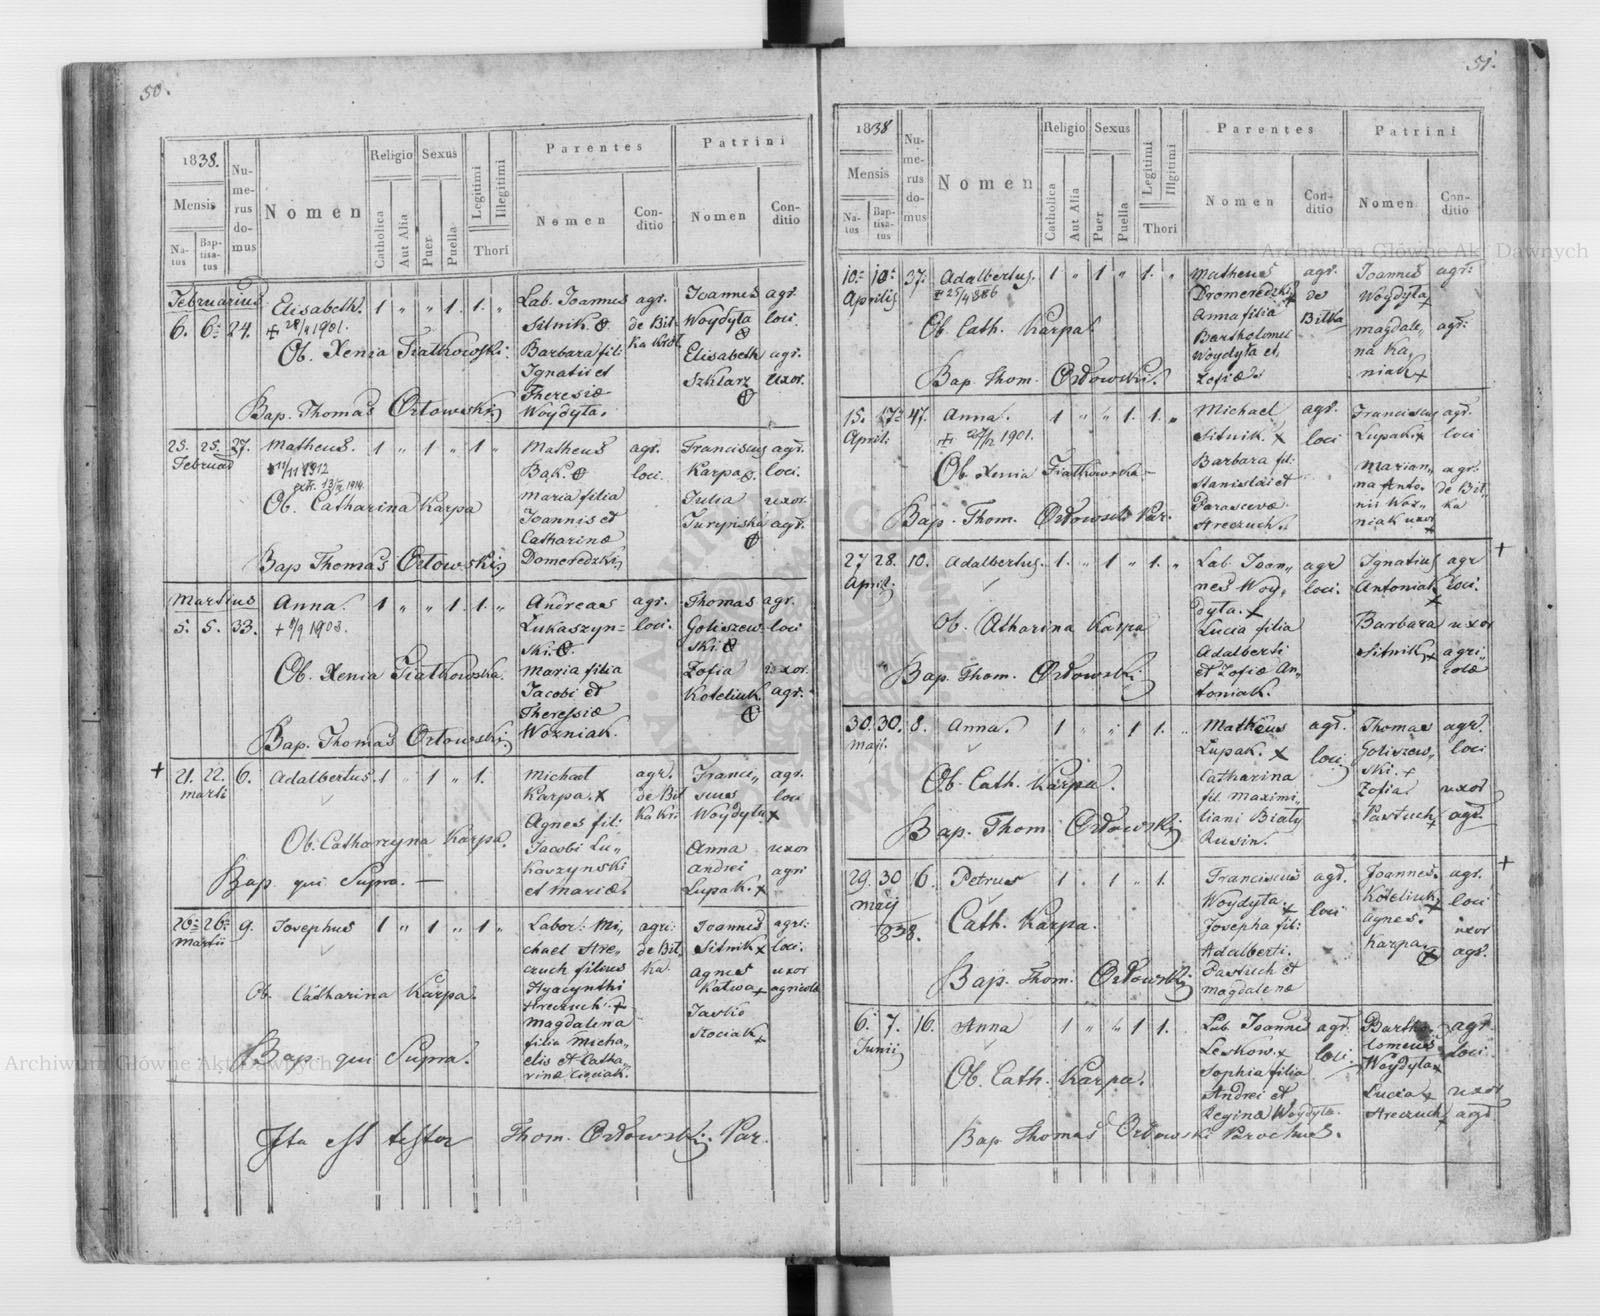 50.
1838.
Mensis
Na-
tus
Bap-
tisa-
tus
Nu-
me-
rus
do-
mus
Nomen
Religio
Catholica
Aut Alia
Sexus
Puer
Puella
Legitimi
Illegitimi
Thori
Parentes
Nomen
Con-
ditio
Patrini
Nomen
Con-
ditio
Februarius
6. 6: 24. Elisabeth. 1 " " 1. 1. "
1901.
Ob. Xenia Fiatkowski.
Bap. Thomas Orlowski
Lab. Joannes
Sitnik.
Barbara fil:
Ignatii et
Theresiæ
Woydyła.
agr.
de Bit-
Joannes
Woydyła
Elisabeth
Szklarz
agr.
loci.
agr.
uxor.
25. 25. 27. Matheus. 1 " 1 " 1 "
Februar
1912
extr. 13/ 1914
Ob. Catharina Karpa
Bap Thomas Orlowski
Matheus
Bąk.
Maria filia
Joannis et
Catharinæ
Domeredzki
agr.
loci.
Franciscus
Karpa.
Julia
Juryńska
agr.
loci.
uxor.
agr.
Martius
5. 5. 33. Anna. 1 " " 1. 1. "
+ 1/9 1903.
Ob. Xenia Fiatkowska.
Bap. Thomas Orlowski
Andreas
Łukaszyn=
ski.
Maria filia
Jacobi et
Theressiæ
Wozniak.
agr.
loci.
Thomas
Goliszew
ski.
Zofia
Koteliuk
agr.
loci
uxor.
agr.
+ 21. 22. 6. Adalbertus. 1 " 1 " 1.
Marti
Ob. Catharzyna Karpa.
Bap. qui Supra. —
Michael
Karpa. x
Agnes fil:
Jacobi Lu"
kaszynski
et Mariæ.
agr.
de Bit
Franci"
scus
Woydyła x
Anna
Andrei
Lupak. x
agr.
loci
uxor
agri
26= 26= 9. Josephus 1 " 1 " 1 "
Martii
Ob. Catharina Karpa.
Bap. qui Supra.
Labor: Mi,
chael Hre"
czuch filius
Hyacynthi
Hreczuch. +
Magdalena
filia Micha"
elis et Catha"
rinæ
agri:
de Bit,
ka.
Joannes
Sitnik x
Agnes
Katwa +
Pavlo
Stociak +
agri:
loci.
uxor
agricolæ
Ita est testor Thom. Orlowski. Par.
51.
1838
Mensis
Na-
tus
Bap-
tisa-
tus
Nu-
me-
rus
do-
mus
Nomen
Religio
Catholica
Aut Alia
Sexus
Puer
Puella
Legitimi
Illgitimi
Thori
Parentes
Nomen
Con-
ditio
Patrini
Nomen
Con-
ditio
10= 10= 37. Adalbertus. 1 " 1 " 1. "
Aprilis
Ob Cath. Karpa.
Bap. Thom. Orlowski.
Matheus
Dromeredzki
Anna filia
Bartholomei
Woydyła et
Zofiæ
agr.
de
Bitka
Joannes
Woydyła
Magdale"
na Ka,
niak x
agr:
agr:
15. 17= 47. Anna. 1 " " 1. 1. "
April:
1901.
Ob. Xenia Fiatkowska —
Bap. Thom. Orlowski Par.
Michael
Sitnik. x
Barbara fil:
Stanislai et
Parascevæ
Hreczuch.
agr.
loci
Franciscus
Lupak x
Marian"
na Anto.
nii Woz"
niak uxor
agr.
loci
agr.
de Bit,
ka
27 28. 10. Adalbertus. 1. " 1 " 1. "
April.
Ob. Catharina Karpa
Bap. Thom. Orlowski
Lab. Joan"
nes Woy"
dyła. x
Lucia filia
Adalberti
et Zofiæ An"
toniak.
agr
loci.
Ignatius
Antoniak x
Barbara
Sitnik x
agr +
loci.
uxor
agri,
colæ
30. 30. 8. Anna. 1 " " 1 1. "
Maji.
Ob. Cath. Karpa.
Bap. Thom Orlowski
Matheus
Lupak. x
Catharina
fil. Maximi"
liani Biały
Rusin.
agr.
loci
Thomas
Goliszew,
ski. +
Zofia
Pastuch x
agr.
loci
uxor
agr.
29. 30 6. Petrus 1. " 1 " 1.
Maij
1838.
Cath. Karpa.
Bap. Thom. Orlowski
Franciscus
Woydyła.
Josepha fil:
Adalberti.
Pastuch et
Magdalenæ
agr.
loci
Joannes.
Koteliuk
Agnes.
Karpa.
agr. +
loci
uxor
agr.
6. 7. 16. Anna 1 " " 1 1.
Junij
Ob. Cath. Karpa.
Bap Thomas Orlowski Parochus.
Lab. Joannes
Leskow. x
Sophia filia
Andrei et
Reginæ Woydyła.
agr.
loci.
Bartho"
lomeus
Woydyła x
Lucia x
Hreczuch
agr.
loci.
uxor
agr
Archiwum Główne Akt Dawnych
Archiwum Główne Akt Dawnych